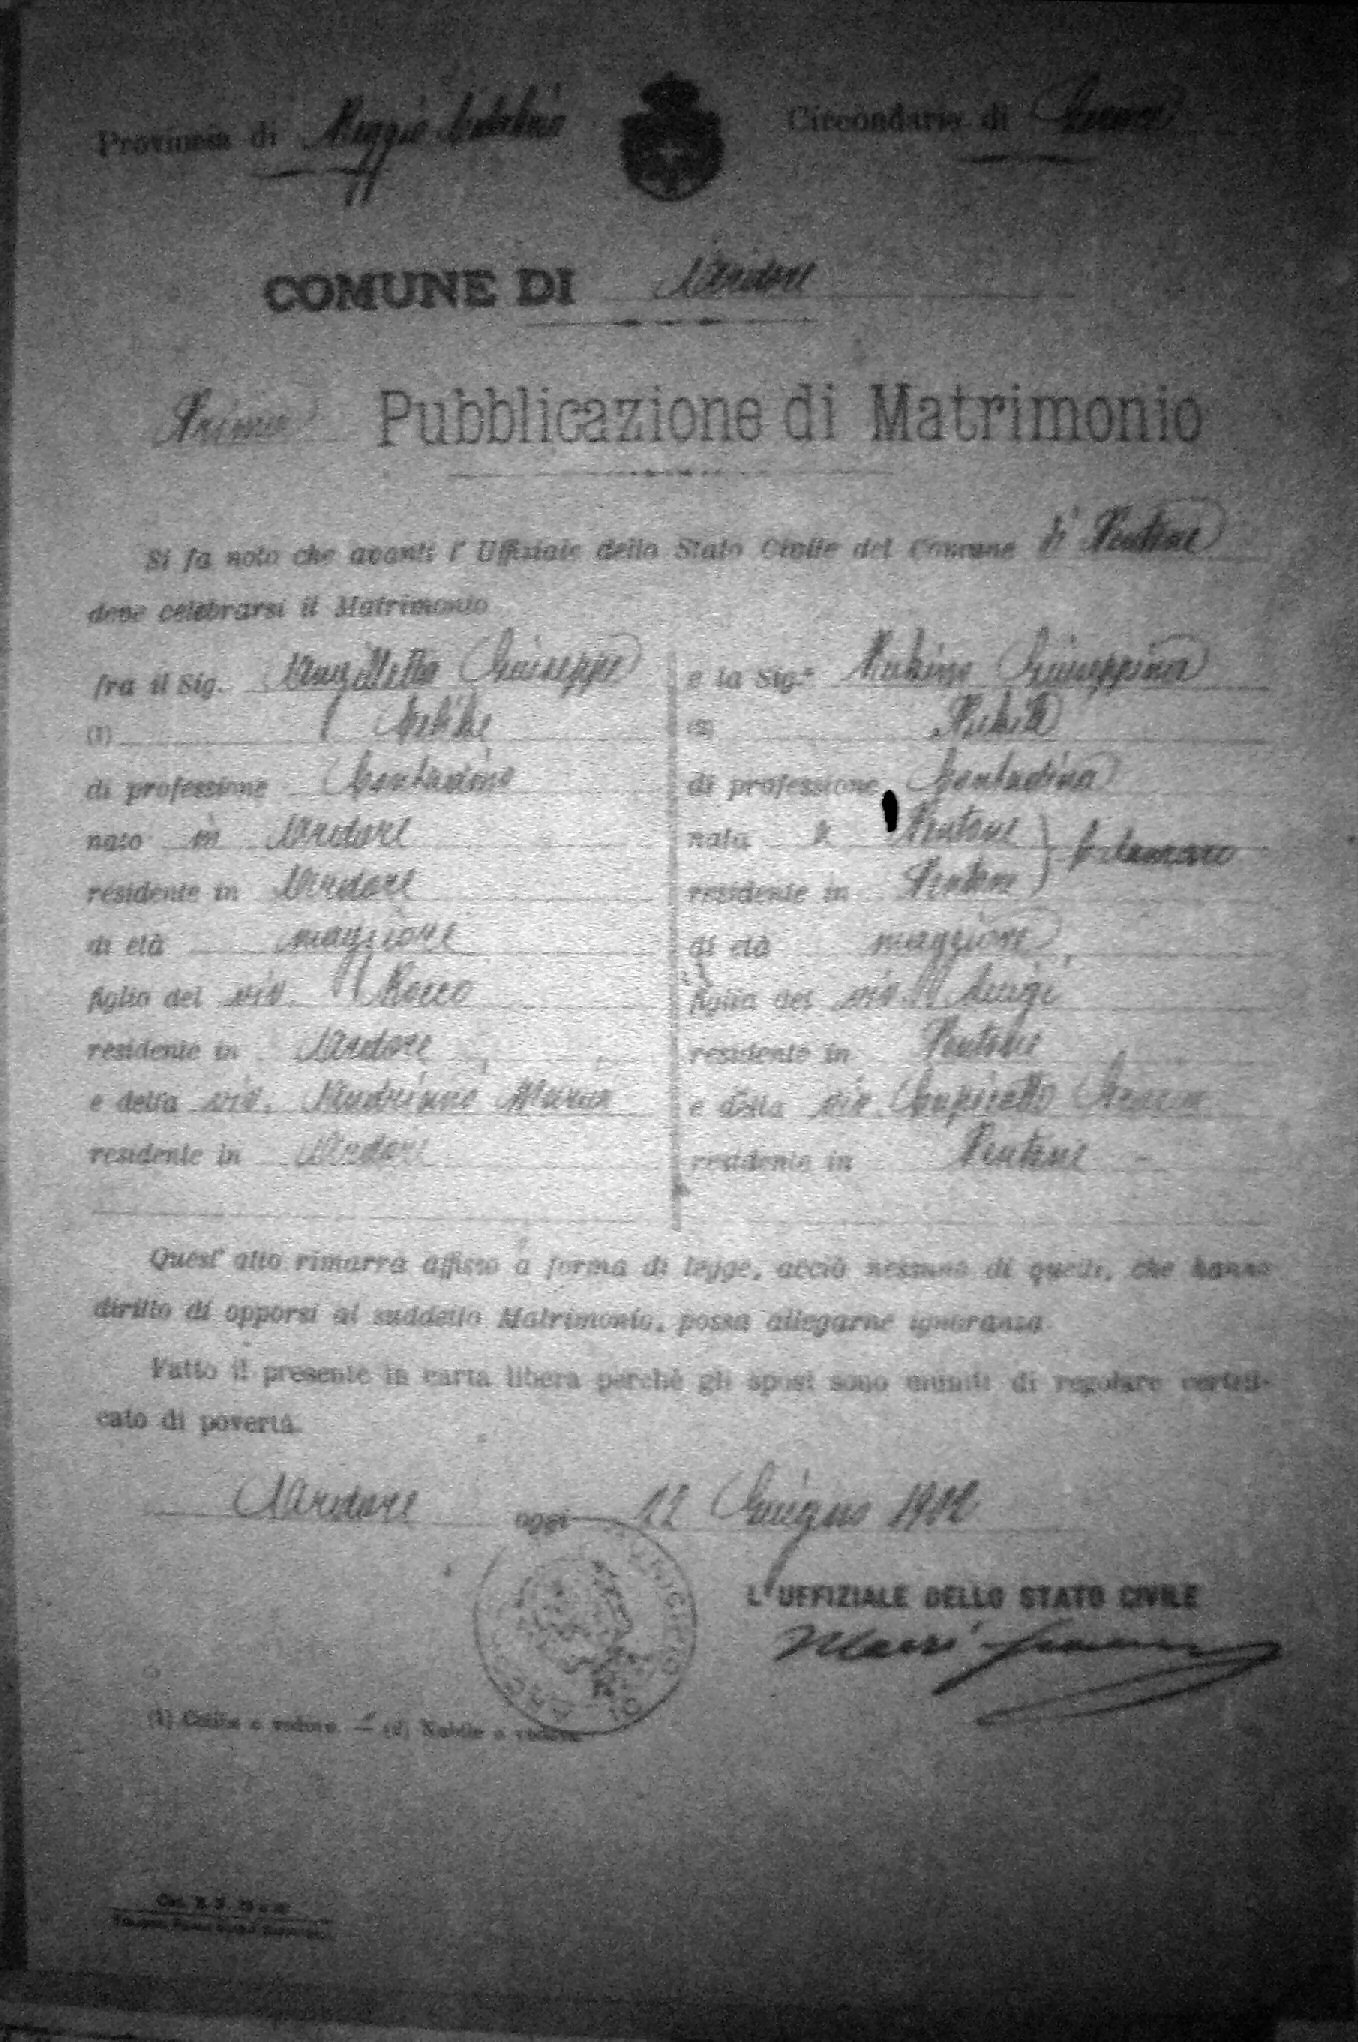 Provincia di Reggio Calabria Circondario di Gerace
COMUNE DI Ardore
Prima Pubblicazione di Matrimonio
Si fa noto che avanti l'Uffiziale dello Stato Civile del Comune di Pentone
deve celebrarsi il Matrimonio
fra il Sig. Giuseppe e la Sig.ª Giuseppina
(1) Celibe (2) Nubile
di professione Contadino di professione Contadina
nato in Ardore nata a Pentone
residente in Ardore residente in Pentone
di età maggiore di età maggiore
figlio del viv. Rocco figlia del viv. Luigi
residente in Ardore residente in Pentone
e della viv. Maria e della viv.
residente in Ardore residente in Pentone
Quest'atto rimarrà affisso a forma di legge, acciò nessuno di quelli, che hanno
diritto di opporsi al suddetto Matrimonio, possa allegarne ignoranza.
Fatto il presente in carta libera perchè gli sposi sono muniti di regolare certifi-
cato di povertà.
Ardore oggi 12 Giugno 1902
L'UFFIZIALE DELLO STATO CIVILE
Macrì
MUNICIPIO DI ARDORE
(1) Celibe o vedovo — (2) Nubile o vedova